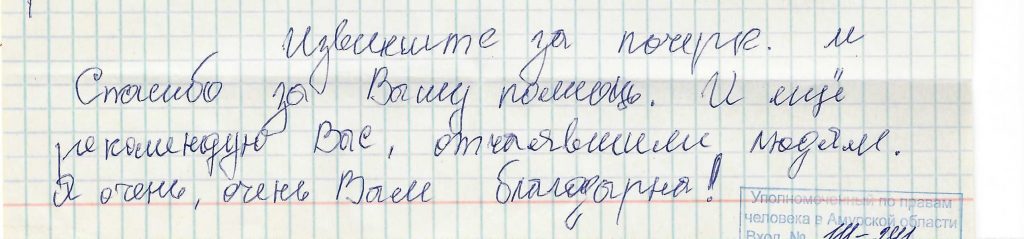 Извините за почерк. и
Спасибо за Вашу помощь. И ещё
рекомендую Вас, отчаявшими людям.
Я очень, очень Вам благодырна!
Уполномоченный по правам
человека в Амурской области
Вход. №